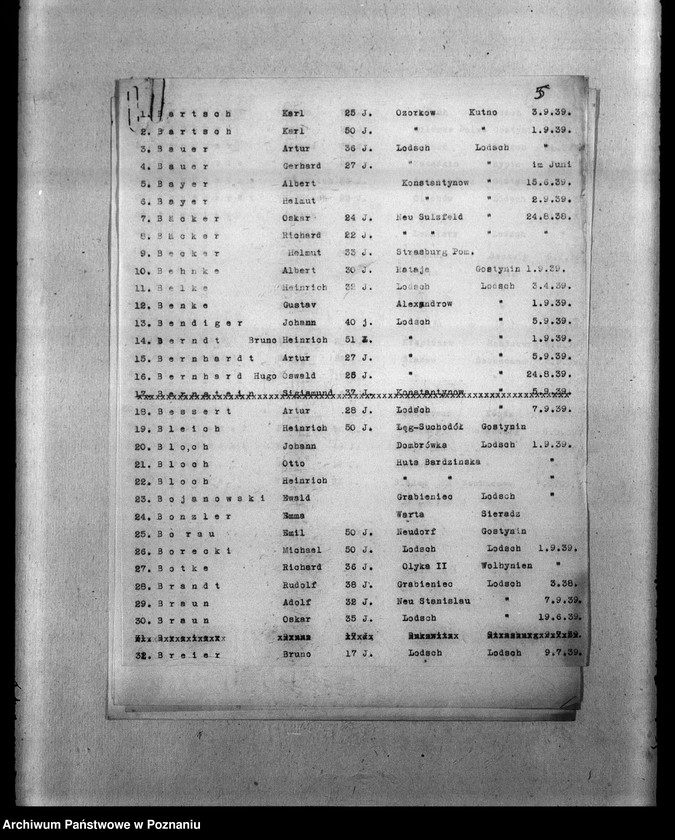 5
1. B a r t s c h Karl 25 J. Ozorkow Kutno 3.9.39.
2. B a r t s c h Karl 50 J. " " 1.9.39.
3. B a u e r Artur 36 J. Lodsch Lodsch "
4. B a u e r Gerhard 27 J. " " im Juni
5. B a y e r Albert Konstantynow " 15.6.39.
6. B a y e r Helmut " " 2.9.39.
7. B ä c k e r Oskar 24 J. Neu Sulzfeld " 24.8.38.
8. B ä c k e r Richard 22 J. " " " "
9. B e c k e r Helmut 33 J. Strasburg Pom.
10. B e h n k e Albert 30 J. Rataje Gostynin 1.9.39.
11. B e l k e Heinrich 32 J. Lodsch Lodsch 3.4.39.
12. B e n k e Gustav Alexandrow " 1.9.39.
13. B e n d i g e r Johann 40 j. Lodsch " 5.9.39.
14. B e r n d t Bruno Heinrich 51 J. " " 1.9.39.
15. B e r n h a r d t Artur 27 J. " " 5.9.39.
16. B e r n h a r d Hugo Oswald 25 J. " " 24.8.39.
17. Sigismund 37 J. Konstantynow " 5.9.39.
18. B e s s e r t Artur 28 J. Lodsch " 7.9.39.
19. B l e i c h Heinrich 50 J. Łęg-Suchodók Gostynin
20. B l o c h Johann Dombrówka Lodsch 1.9.39.
21. B l o c h Otto Huta Bardzinska "
22. B l o c h Heinrich " " "
23. B o j a n o w s k i Ewald Grabieniec Lodsch "
24. B o n z l e r Emma Warta Sieradz
25. B o r a u Emil 50 J. Neudorf Gostynin
26. B o r e c k i Michael 50 J. Lodsch Lodsch 1.9.39.
27. B o t k e Richard 36 J. Olyka II Wolhynien "
28. B r a n d t Rudolf 38 J. Grabieniec Lodsch 3.38.
29. B r a u n Adolf 32 J. Neu Stanislau " 7.9.39.
30. B r a u n Oskar 35 J. Lodsch " 19.6.39.
32. B r e i e r Bruno 17 J. Lodsch Lodsch 9.7.39.
Archiwum Państwowe w Poznaniu